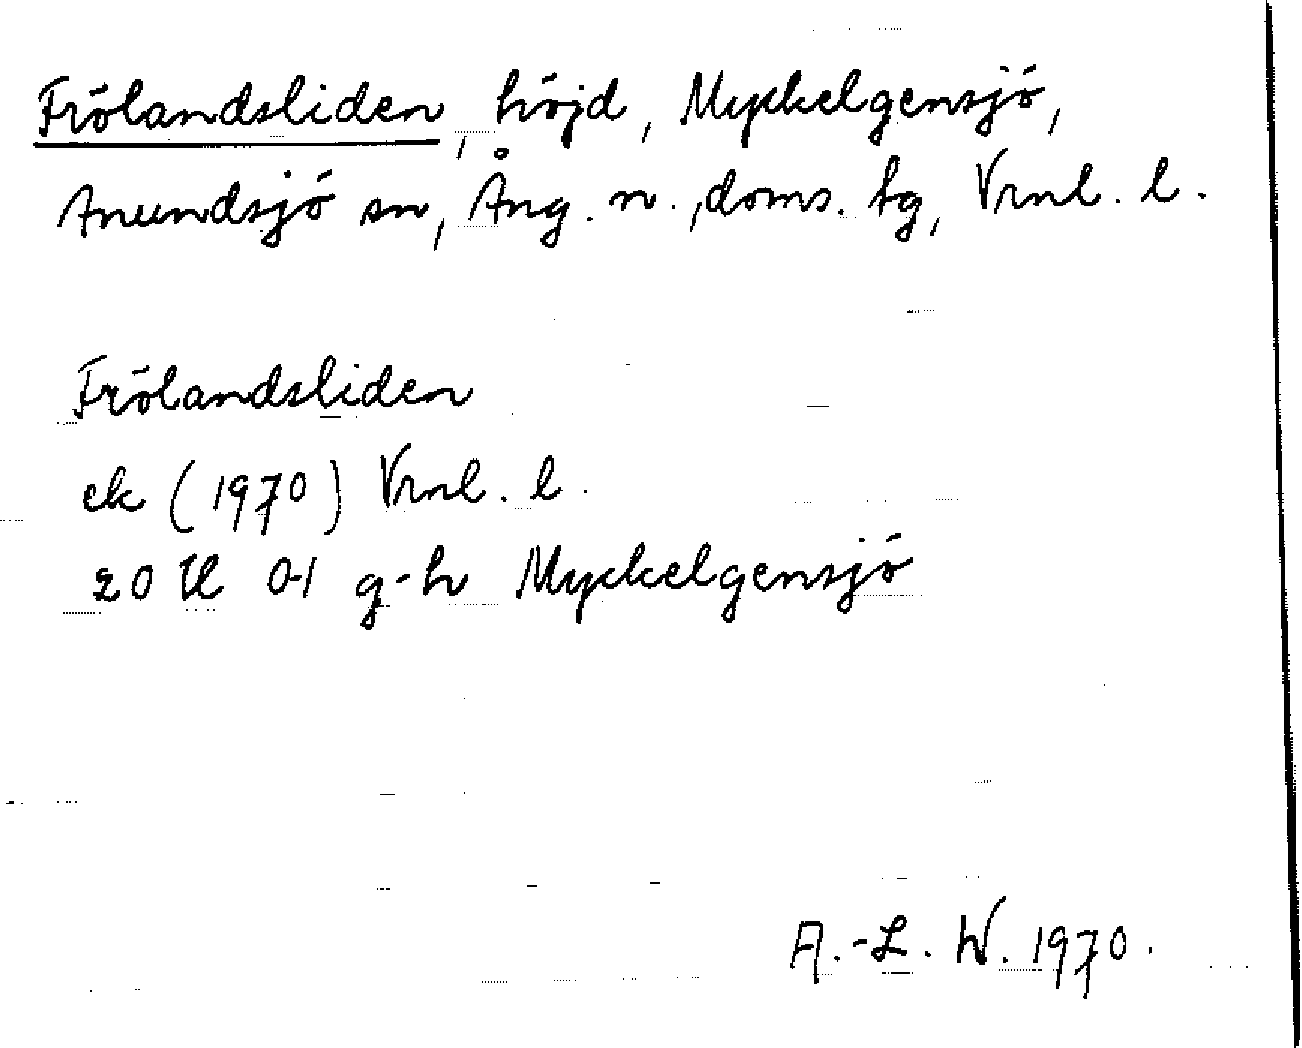 Frölandsliden, höjd, Myckelgensjö,
Anundsjö sn, Ång. n., doms. tg, Vrnl. l.
Frölandsliden
ek (1970) Vrnl. l.
20 H 0-1 g-h Myckelgensjö
A.-L. W. 1970.